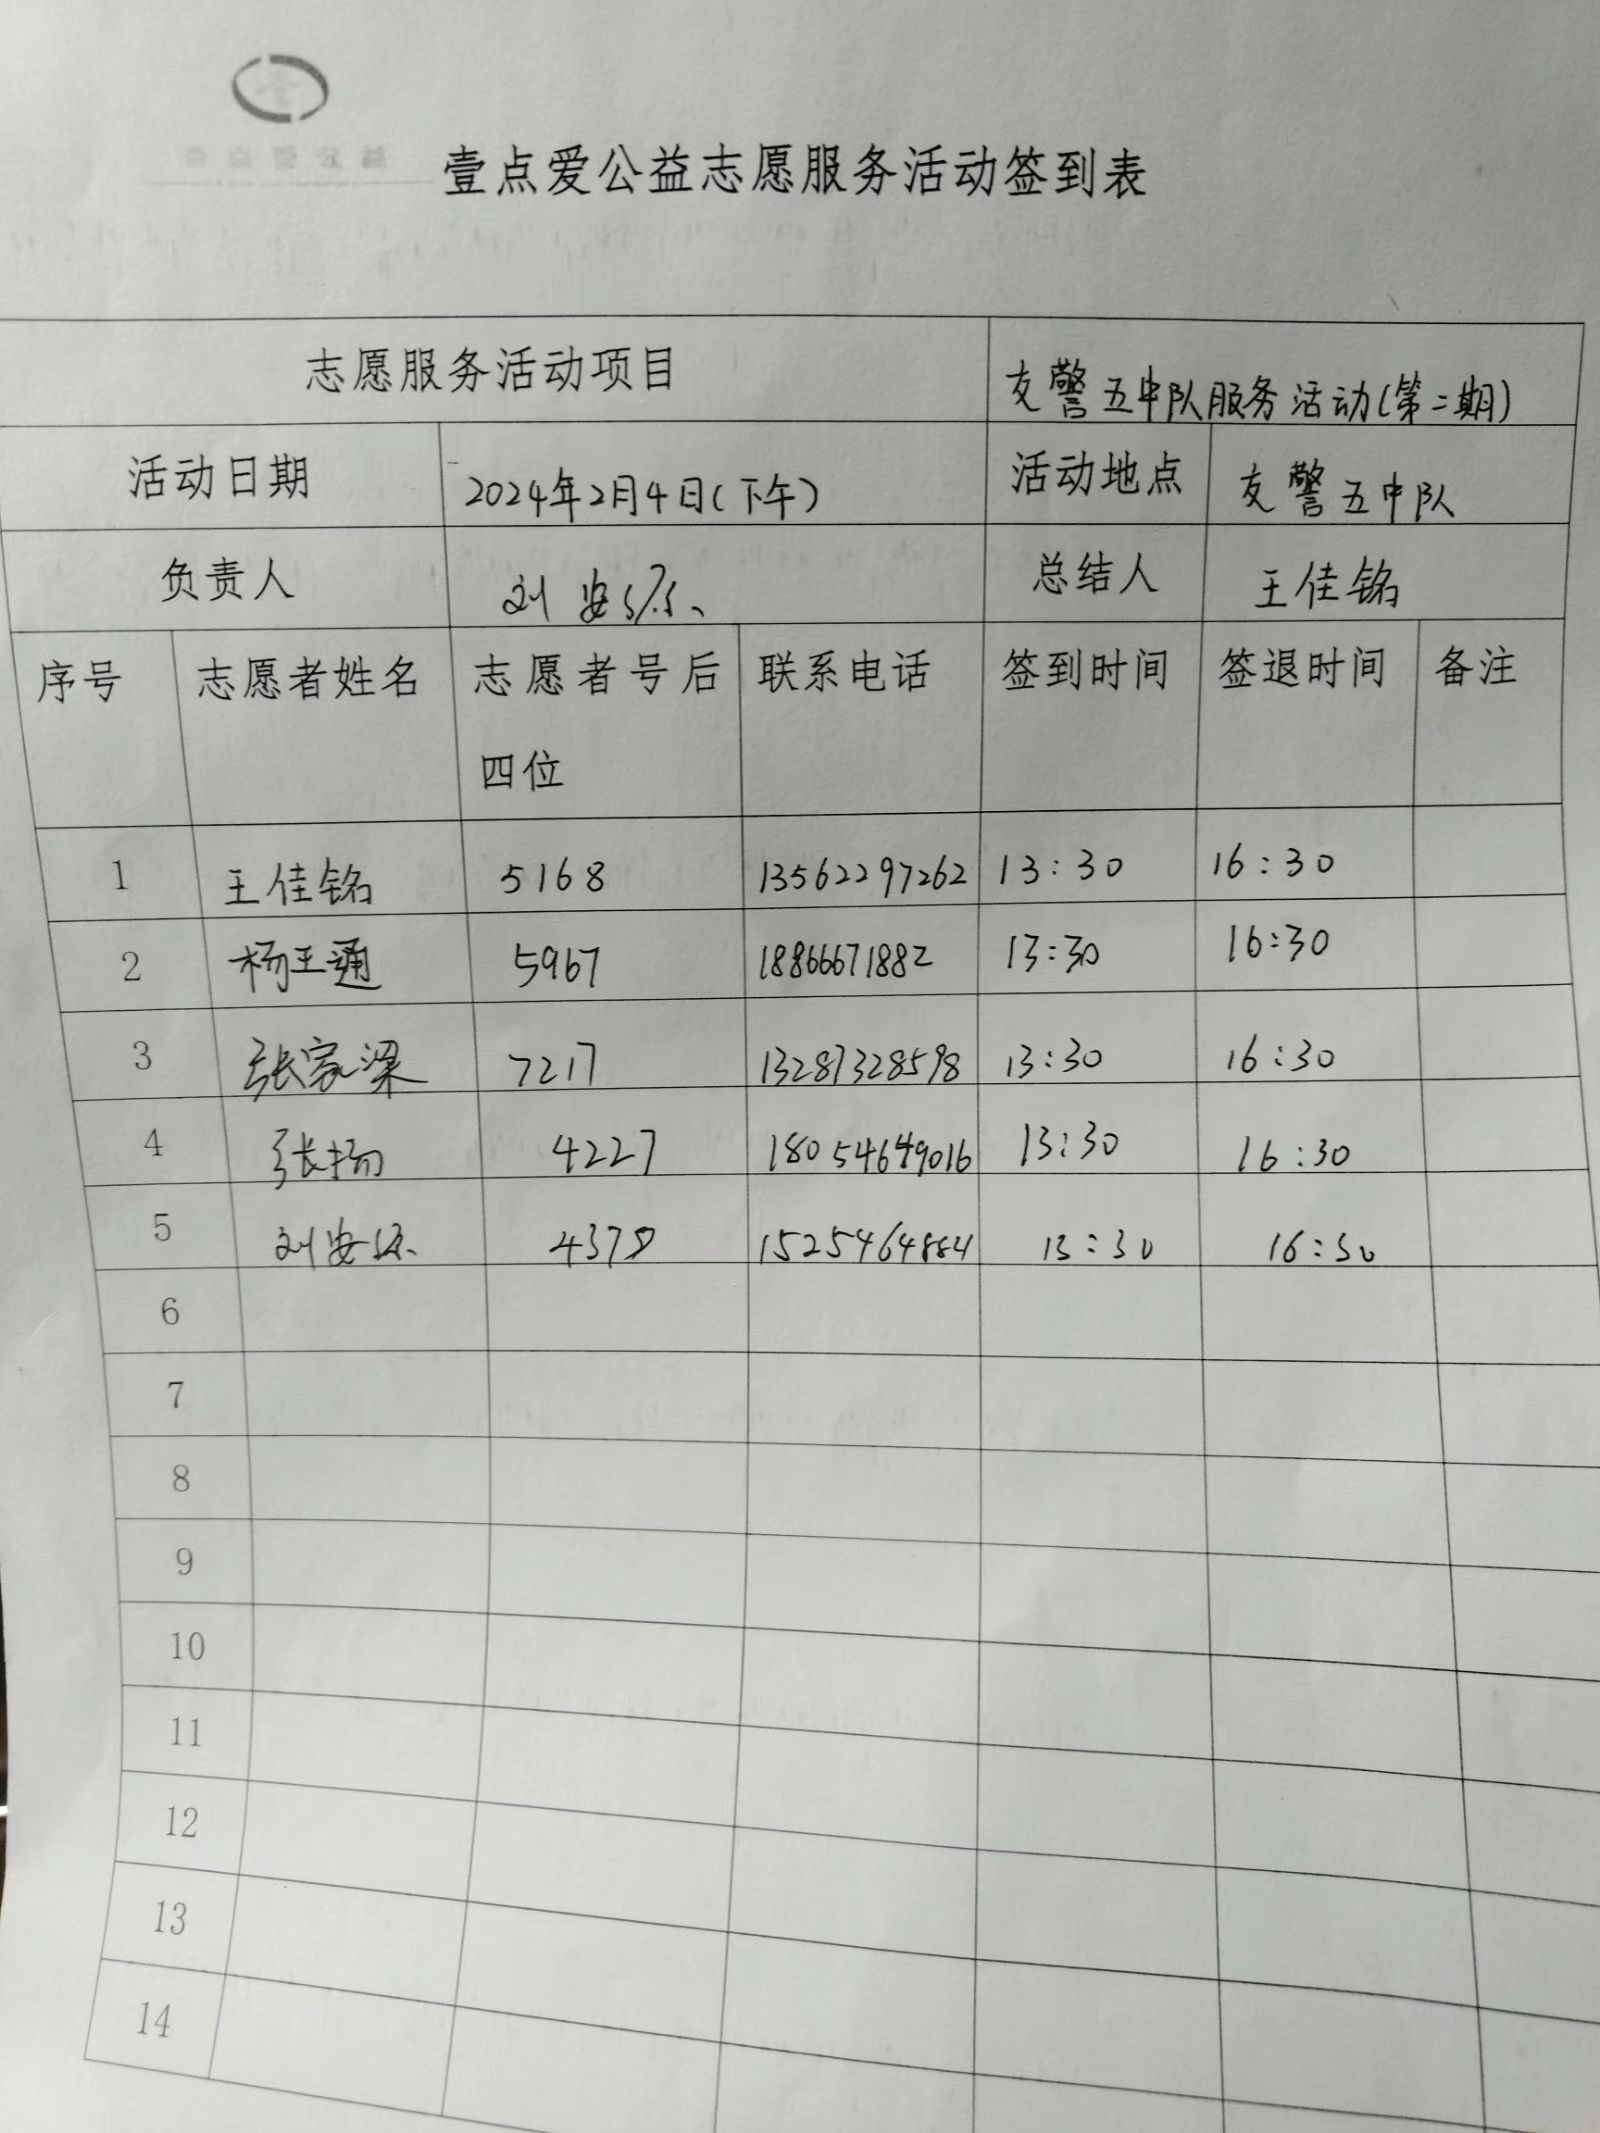 壹点爱公益志愿服务活动签到表
志愿服务活动项目 友警五中队服务活动(第二期)
活动日期 2024年2月4日(下午) 活动地点 友警五中队
负责人 刘安源 总结人 王佳铭
序号 志愿者姓名 志愿者号后四位 联系电话 签到时间 签退时间 备注
1 王佳铭 5168 13562297262 13:30 16:30
2 杨王通 5967 18866671882 13:30 16:30
3 张家梁 7217 13287328598 13:30 16:30
4 张扬 4227 18054649016 13:30 16:30
5 刘安源 4378 1525464884 13:30 16:30
6
7
8
9
10
11
12
13
14